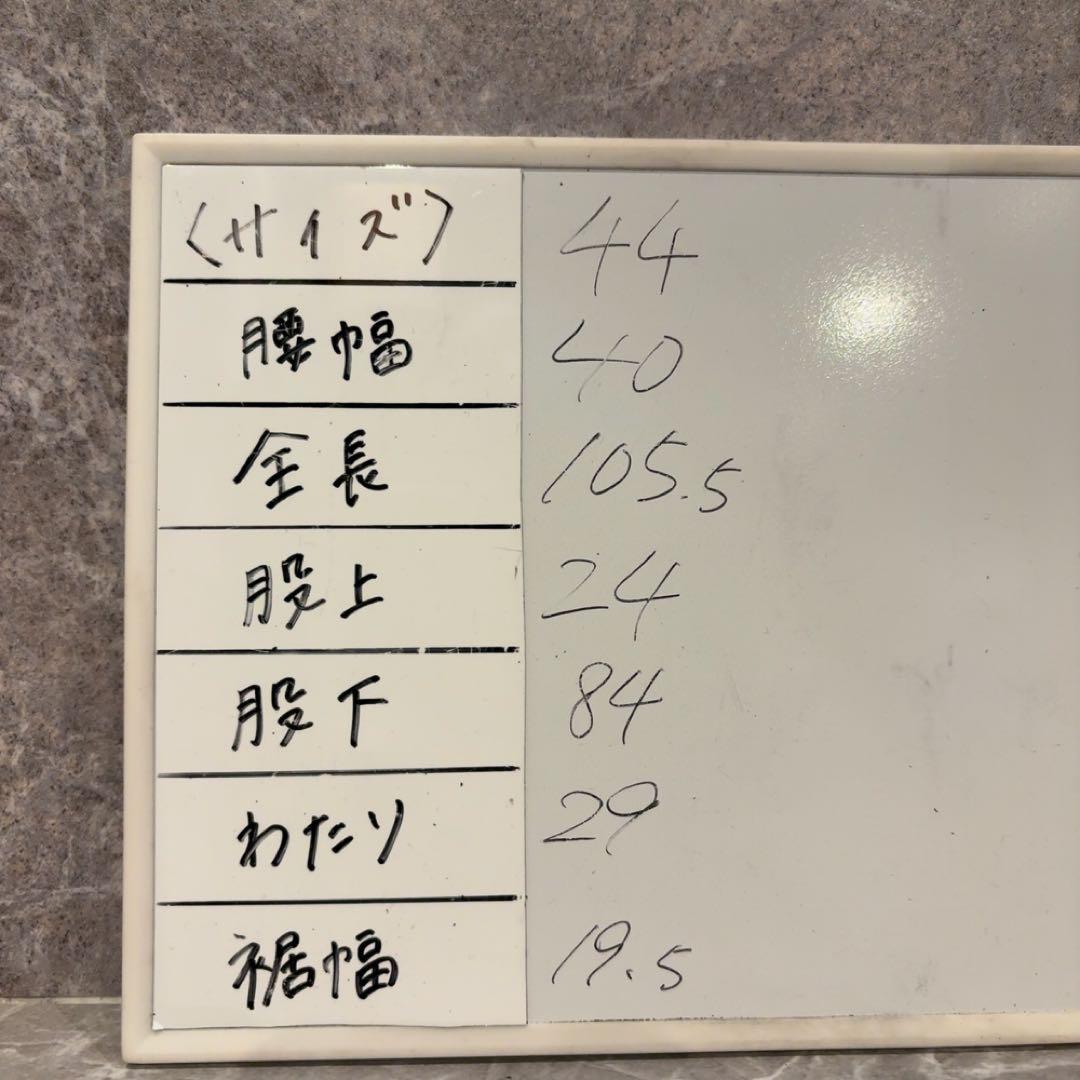 〈サイズ〉 44
腰幅 40
全長 105.5
股上 24
股下 84
わたり 29
裾幅 19.5